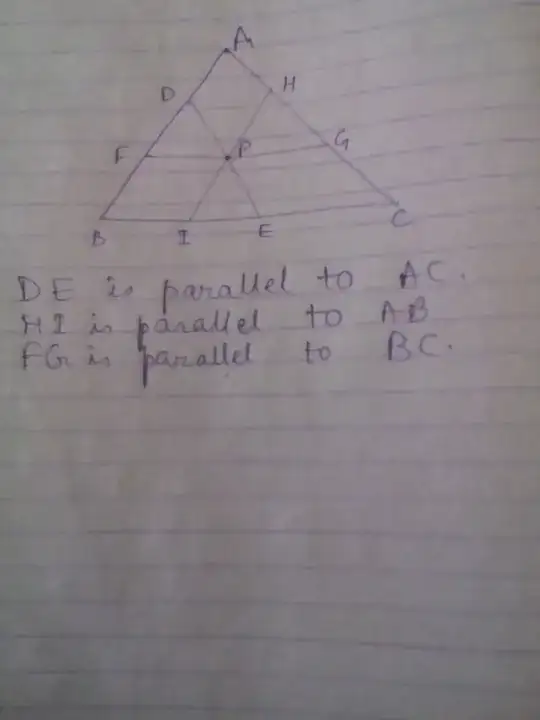 A
D H
F P G
B I E C
DE is parallel to AC.
HI is parallel to AB
FG is parallel to BC.